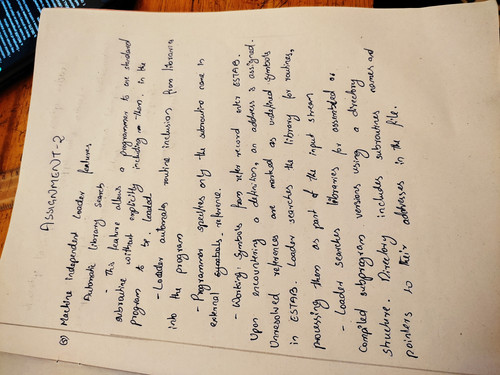 ASSIGNMENT-2
Q) Machine independent loader features
Automatic library search
- This feature allows a programmer to use standard
subroutine without explicitly including them in the
program to be loaded
- Loader automates routine inclusion from libraries
into the program
- Programmer specifies only the subroutine name in
external symbols reference.
- Working: Symbols from refer record enter ESTAB.
Upon encountering a definition, an address is assigned.
Unresolved references are marked as undefined symbols
in ESTAB. Loader searches the library for routines,
processing them as part of the input stream
- Loader searches libraries for assembled or
Compiled subprogram versions using a directory
structure. Directory includes subroutines names and
pointers to their addresses in the file.